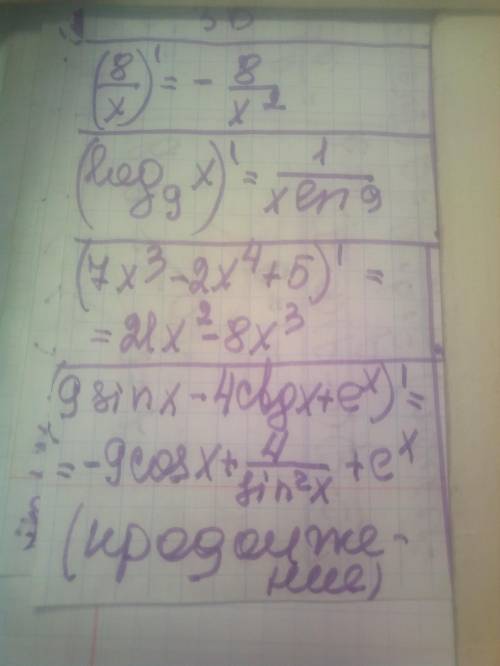 (8/x)' = - 8/x²
(log₉ x)' = 1/(x ln 9)
(7x³ - 2x⁴ + 5)' =
= 21x² - 8x³
(9 sin x - 4 ctg x + eˣ)' =
= -9 cos x + 4/sin²x + eˣ
(продолже-
ние)